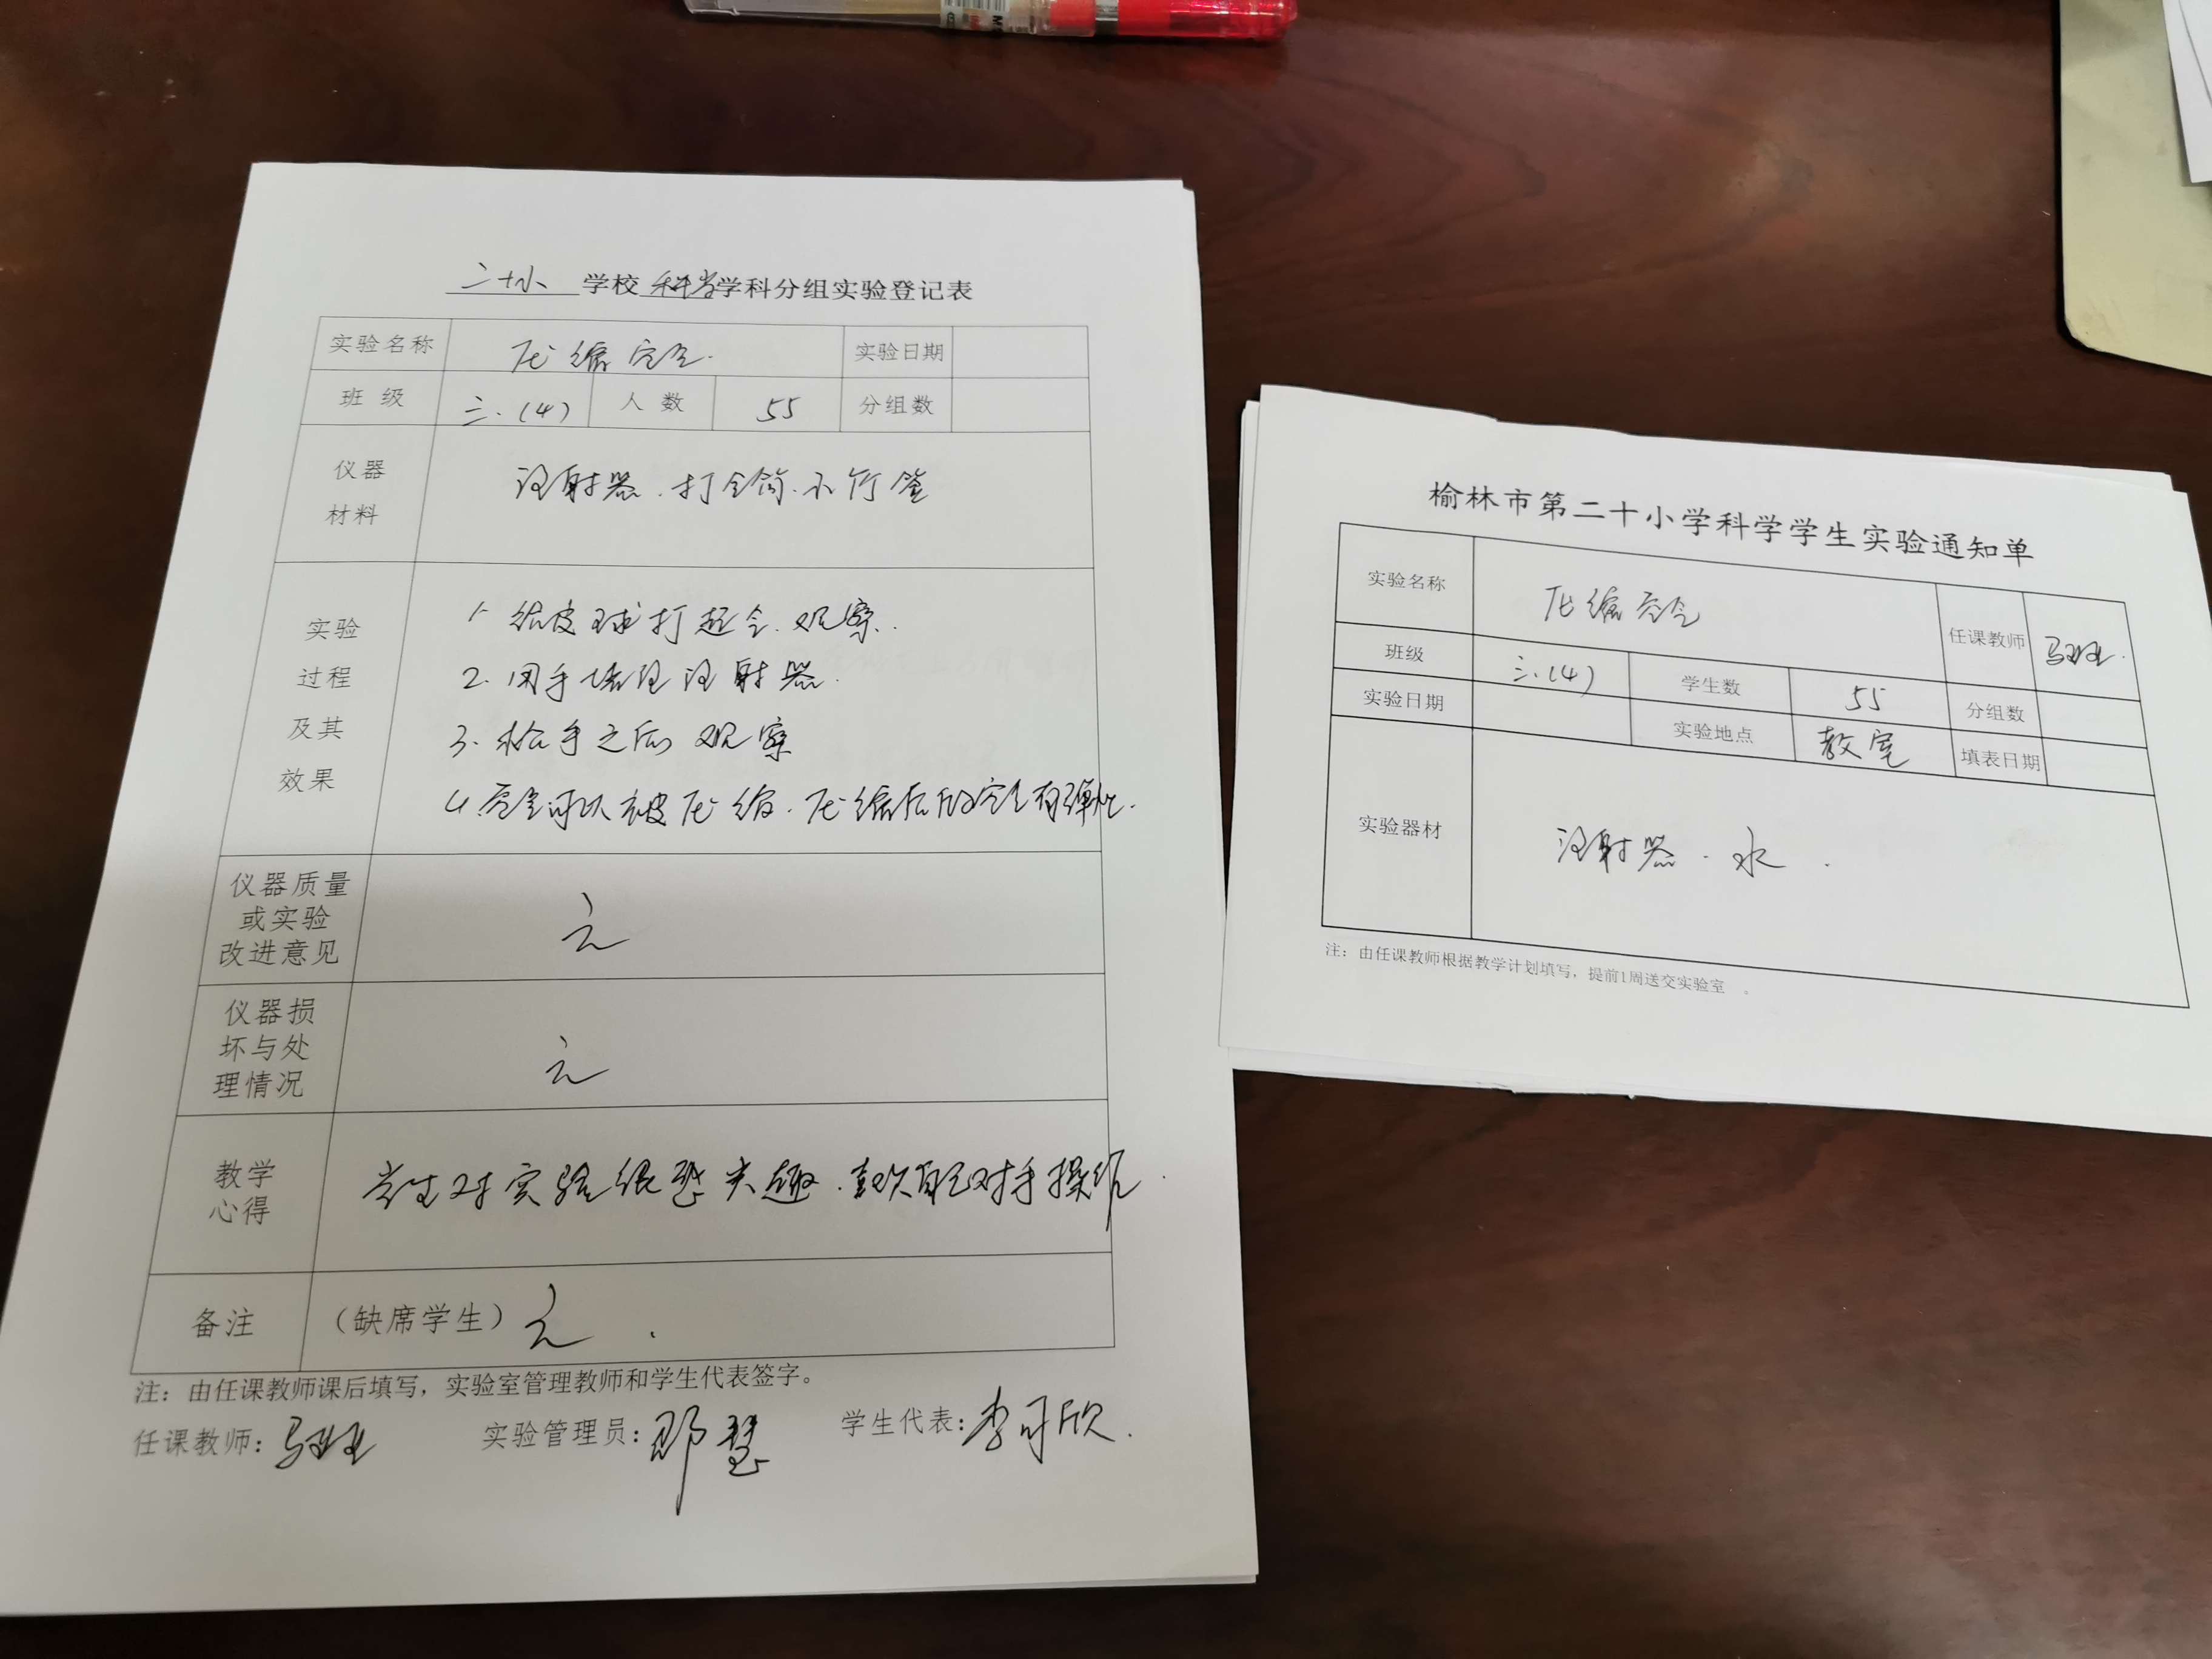 二十小 学校 科学 学科分组实验登记表
实验名称 压缩空气 实验日期
班 级 三.(4) 人 数 55 分组数
仪器
材料
注射器.打气筒.小竹签
实验
过程
及其
效果
1. 给皮球打足气.观察.
2. 用手堵住注射器.
3. 松手之后观察
4.空气可以被压缩.压缩后的空气有弹性.
仪器质量
或实验
改进意见
无
仪器损
坏与处
理情况
无
教学
心得
学生对实验很感兴趣.喜欢自己动手操作.
备注 (缺席学生) 无.
注：由任课教师课后填写，实验室管理教师和学生代表签字。
任课教师: 马 实验管理员: 邓慧 学生代表: 李可欣.
榆林市第二十小学科学学生实验通知单
实验名称 压缩空气 任课教师 马
班级 三.(4) 学生数 55 分组数
实验日期 实验地点 教室 填表日期
实验器材 注射器.水.
注：由任课教师根据教学计划填写，提前1周送交实验室 。